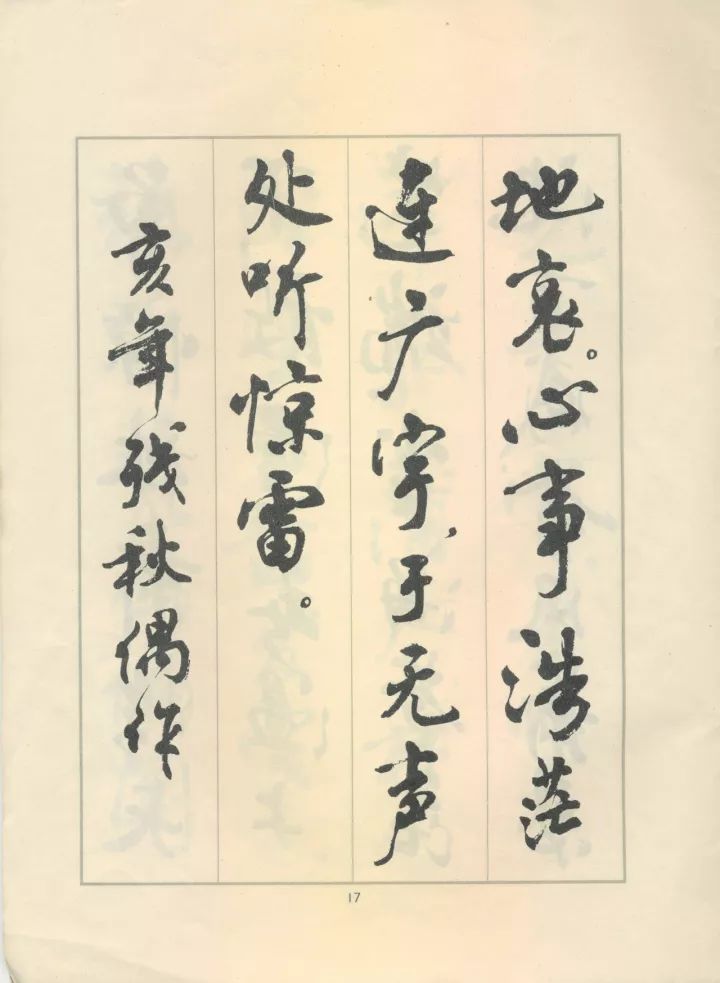 地哀。心事浩茫
连广宇，于无声
处听惊雷。
亥年残秋偶作
17